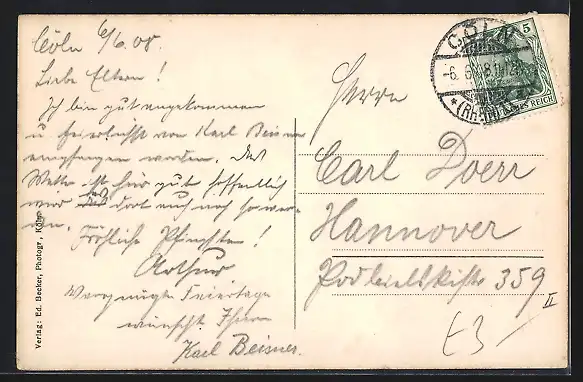 Cöln 6/6.08.
Liebe Eltern!
Ich bin gut angekommen
u. feierlichst von Karl Beisner
empfangen worden. Das
Wetter ist hier gut hoffentlich
wird das dort auch noch so wer-
den. Fröhliche Pfingsten!
Arthur
Vergnügte Feiertage
wünscht Ihnen
Karl Beisner.
Verlag: Ed. Becker, Photogr., Köln
CÖLN
-6. 6. 08.
* (Rh.)
5
DEUTSCHES REICH
Herrn
Carl Doerr
Hannover
Podbielskistr 359 II
E3